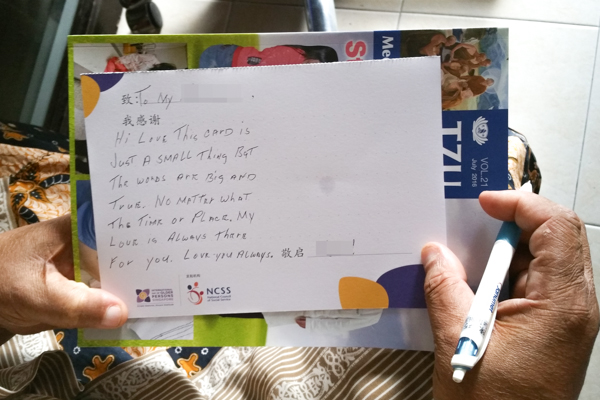 致:To My
我感谢
Hi Love This card is
Just A small Thing But
The words are Big and
True. No matter what
The Time or Place. My
Love is Always There
For you. Love you Always. 敬启
NCSS
INTERNATIONAL
PERSONS
Me
S
TZU
VOL.21
July 2016